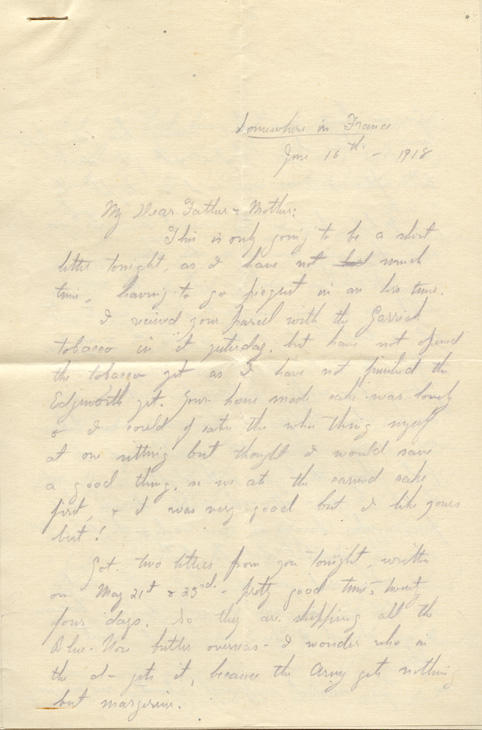 Somewhere in France
June 16th - 1918
My Dear Father & Mother:
This is only going to be a short
letter tonight, as I have not had much
time, having to go piquet in an hrs time.
I received your parcel with the Garrick
tobacco in it yesterday, but have not opened
the tobacco yet as I have not finished the
Edgworth yet. Your home made cake was lovely
& I could of eaten the whole thing myself
at one sitting but thought I would save
a good thing, so we at the canned cake
first, & it was very good but I like yours
best!
Got two letters from you tonight, written
on May 21st & 23rd - pretty good time, twenty
four days. So they are shipping all the
butter overseas - I wonder who in
the d- gets it, because the Army gets nothing
but margerine.